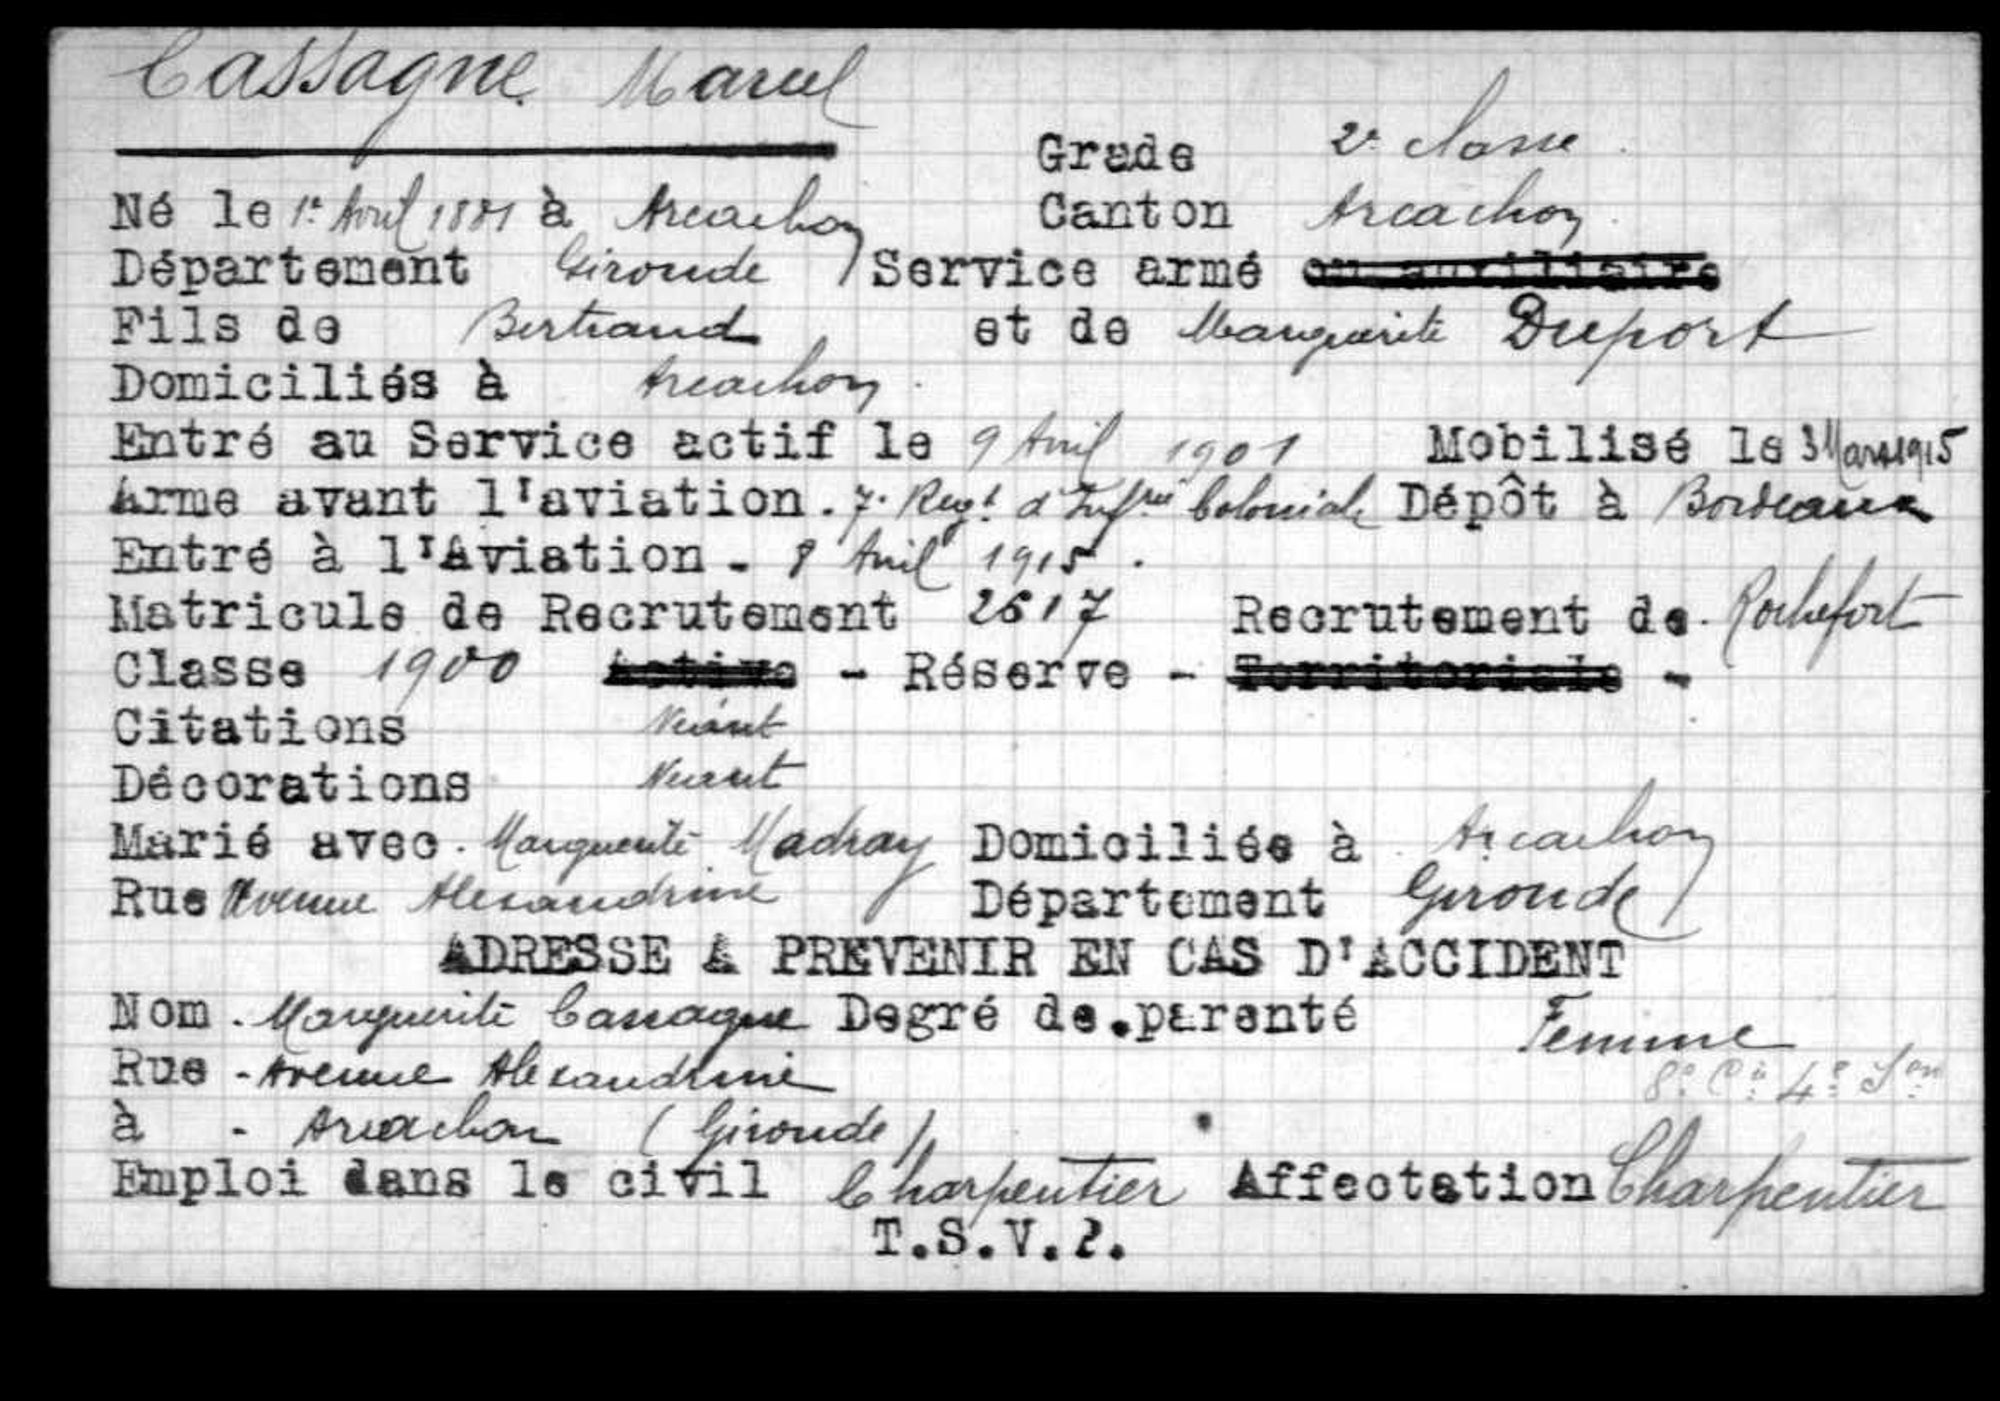 Cassagne Marcel
Grade 2e classe
Né le 1er Avril 1881 à Arcachon Canton Arcachon
Département Gironde Service armé ou auxiliaire
Fils de Bertrand et de Marguerite Duport
Domiciliés à Arcachon
Entré au Service actif le 9 Avril 1901 Mobilisé le 3 Mars 1915
Arme avant l'aviation. 7e Regt d'Infrie Coloniale Dépôt à Bordeaux
Entré à l'Aviation - 8 Avril 1915.
Matricule de Recrutement 2617 Recrutement de Rochefort
Classe 1900 Active - Réserve - Territoriale -
Citations Néant
Décorations Néant
Marié avec Marguerite Madray Domiciliés à Arcachon
Rue Avenue Alexandrine Département Gironde
ADRESSE A PREVENIR EN CAS D'ACCIDENT
Nom. Marguerite Cassagne Degré de parenté Femme
Rue - Avenue Alexandrine 8e Cie 4e Son
à - Arcachon (Gironde)
Emploi dans le civil Charpentier Affectation Charpentier
T.S.V.P.